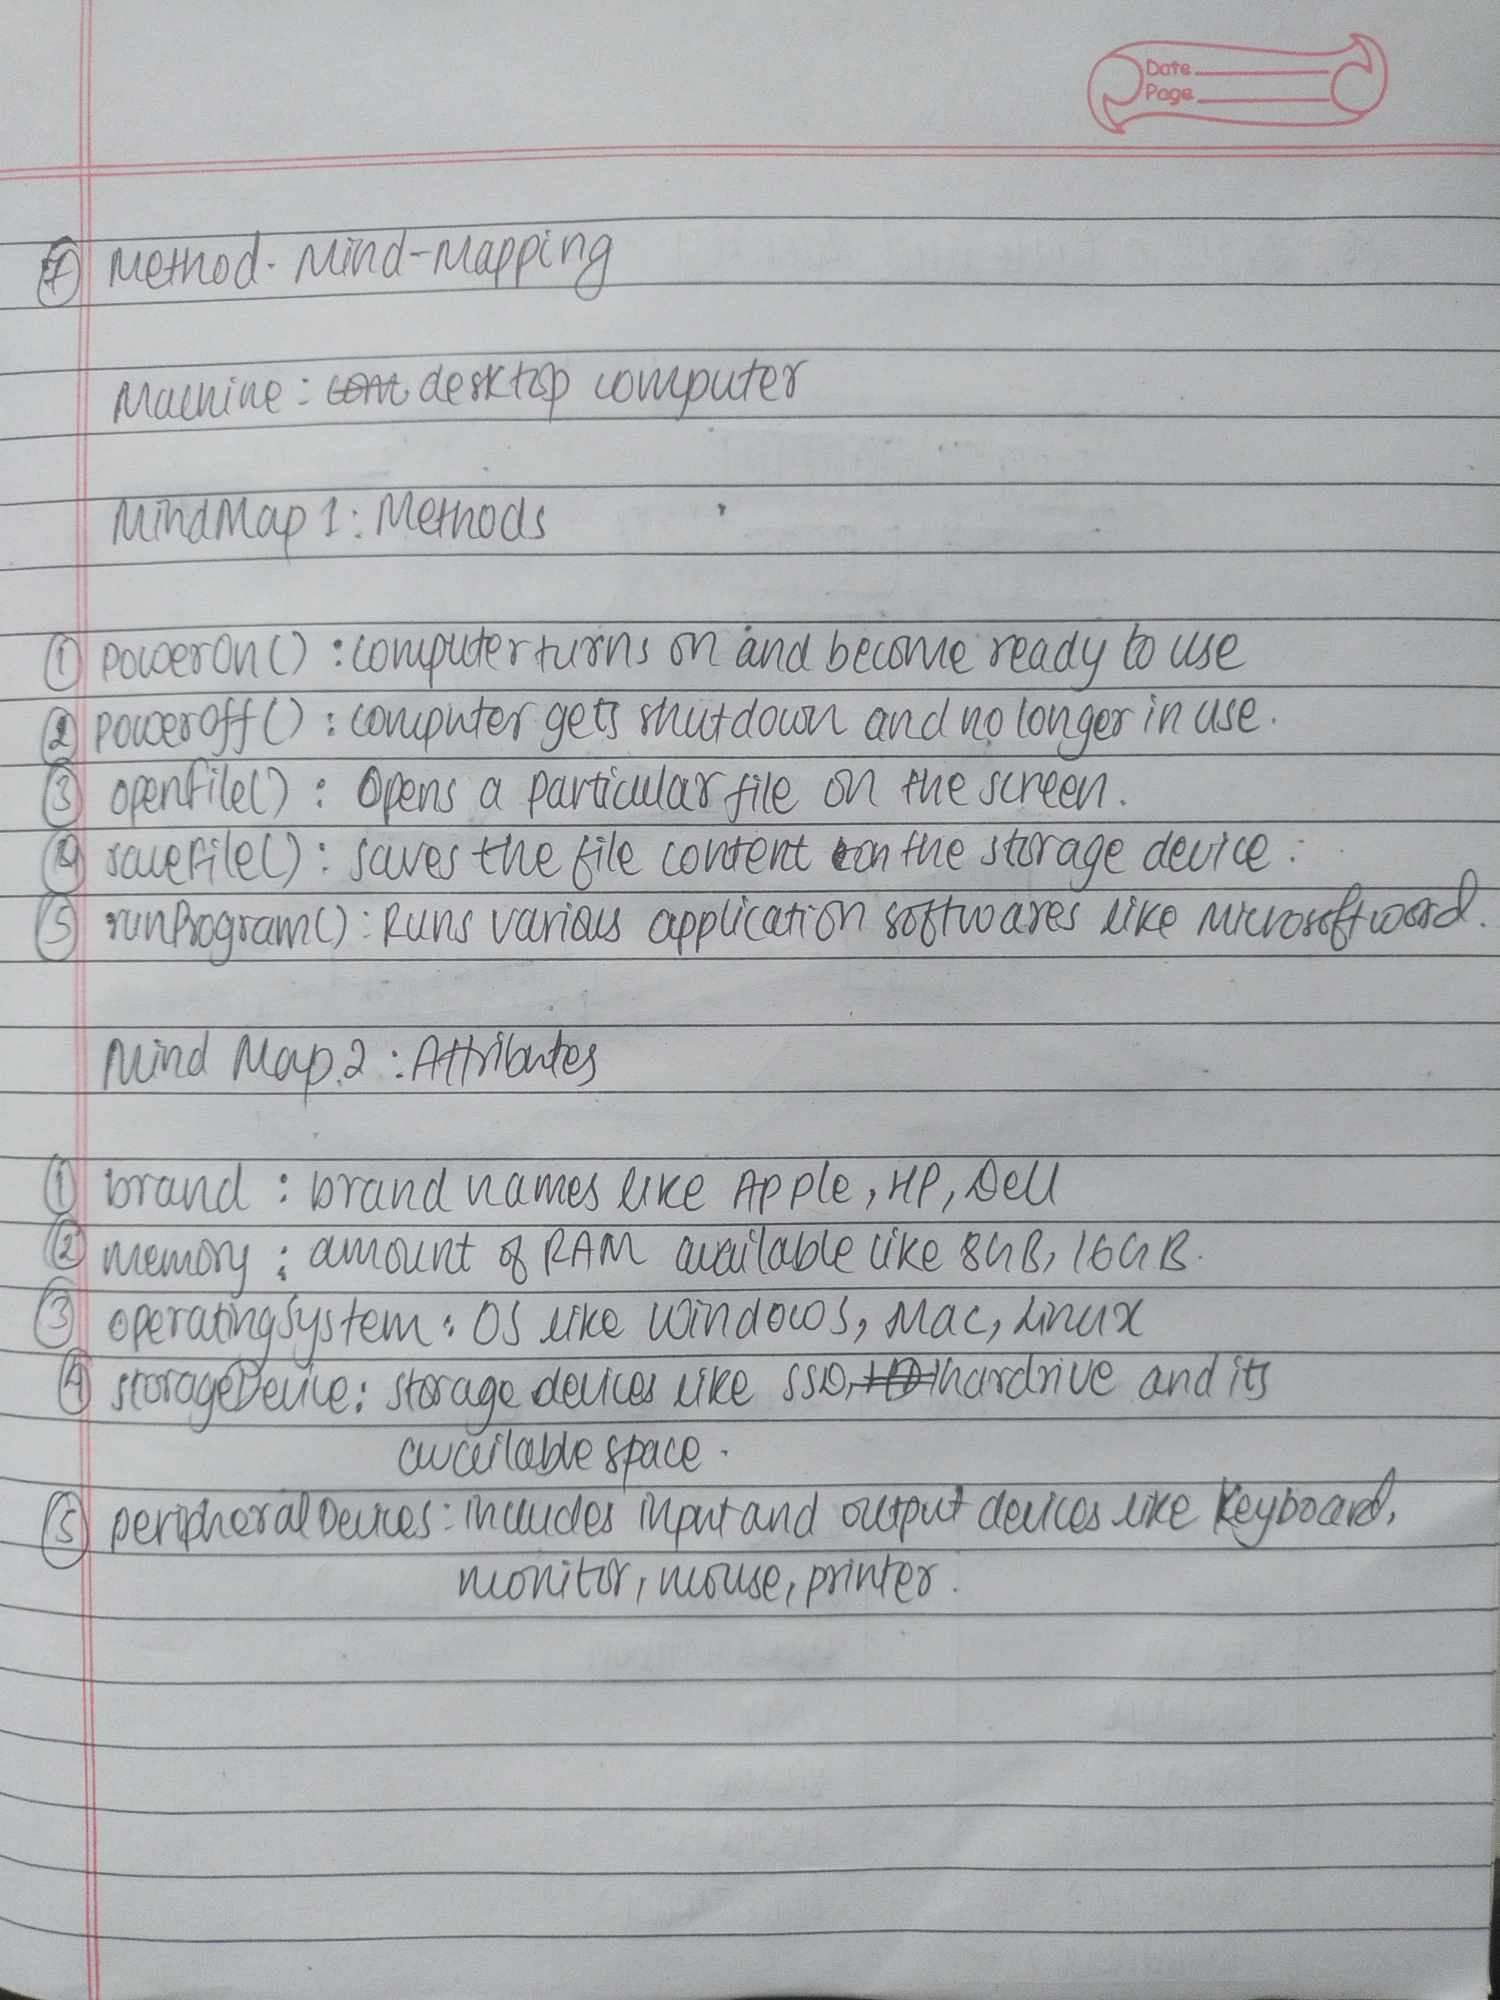 Date
Page
7 Method - Mind-Mapping
Machine: desktop computer
MindMap 1: Methods
1 powerOn() : computer turns on and become ready to use
2 powerOff() : computer gets shutdown and no longer in use.
3 openFile() : Opens a particular file on the screen.
4 saveFile() : saves the file content on the storage device.
5 runProgram() : Runs various application softwares like Microsoft word.
Mind Map.2 : Attributes
1 brand : brand names like Apple, HP, Dell
2 memory : amount of RAM available like 8GB, 16GB.
3 operatingSystem : OS like Windows, Mac, Linux
4 storageDevice : storage devices like SSD, hardrive and its
available space.
5 peripheralDevices : includes input and output devices like keyboard,
monitor, mouse, printer.